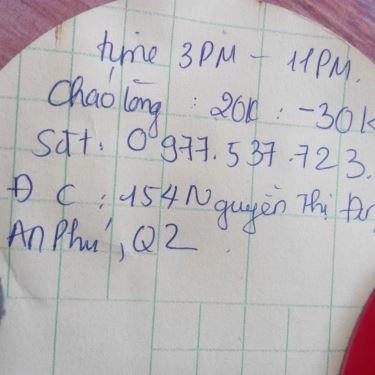 time 3PM - 11PM.
Cháo lòng : 20k : - 30k
Sđt: 0977.537.723.
Đ C : 154 Nguyễn Thị
An Phú, Q2